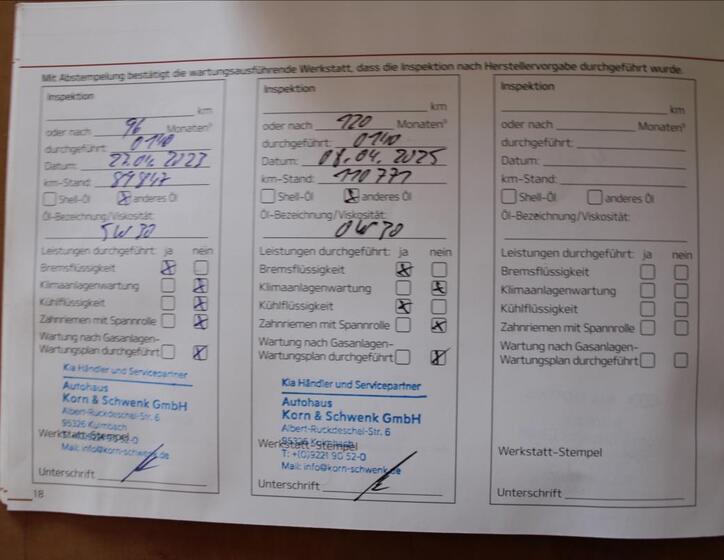 Mit Abstempelung bestätigt die wartungsausführende Werkstatt, dass die Inspektion nach Herstellervorgabe durchgeführt wurde.
Inspektion
km
oder nach 96 Monaten
durchgeführt: 0140
Datum: 27.04.2023
km-Stand: 89847
Shell-Öl anderes Öl
Öl-Bezeichnung/Viskosität:
5W30
Leistungen durchgeführt: ja nein
Bremsflüssigkeit
Klimaanlagenwartung
Kühlflüssigkeit
Zahnriemen mit Spannrolle
Wartung nach Gasanlagen-
Wartungsplan durchgeführt
Kia Händler und Servicepartner
Autohaus
Korn & Schwenk GmbH
Albert-Ruckdeschel-Str. 6
95326 Kulmbach
Werkstatt-Stempel
Mail: info@korn-schwenk.de
Unterschrift
18
Inspektion
km
oder nach 120 Monaten
durchgeführt: 0140
Datum: 08.04.2025
km-Stand: 110771
Shell-Öl anderes Öl
Öl-Bezeichnung/Viskosität:
0W30
Leistungen durchgeführt: ja nein
Bremsflüssigkeit
Klimaanlagenwartung
Kühlflüssigkeit
Zahnriemen mit Spannrolle
Wartung nach Gasanlagen-
Wartungsplan durchgeführt
Kia Händler und Servicepartner
Autohaus
Korn & Schwenk GmbH
Albert-Ruckdeschel-Str. 6
95326 Kulmbach
Werkstatt-Stempel
T: +(0)9221 90 52-0
Mail: info@korn-schwenk.de
Unterschrift
Inspektion
km
oder nach Monaten
durchgeführt:
Datum:
km-Stand:
Shell-Öl anderes Öl
Öl-Bezeichnung/Viskosität:
Leistungen durchgeführt: ja nein
Bremsflüssigkeit
Klimaanlagenwartung
Kühlflüssigkeit
Zahnriemen mit Spannrolle
Wartung nach Gasanlagen-
Wartungsplan durchgeführt
Werkstatt-Stempel
Unterschrift